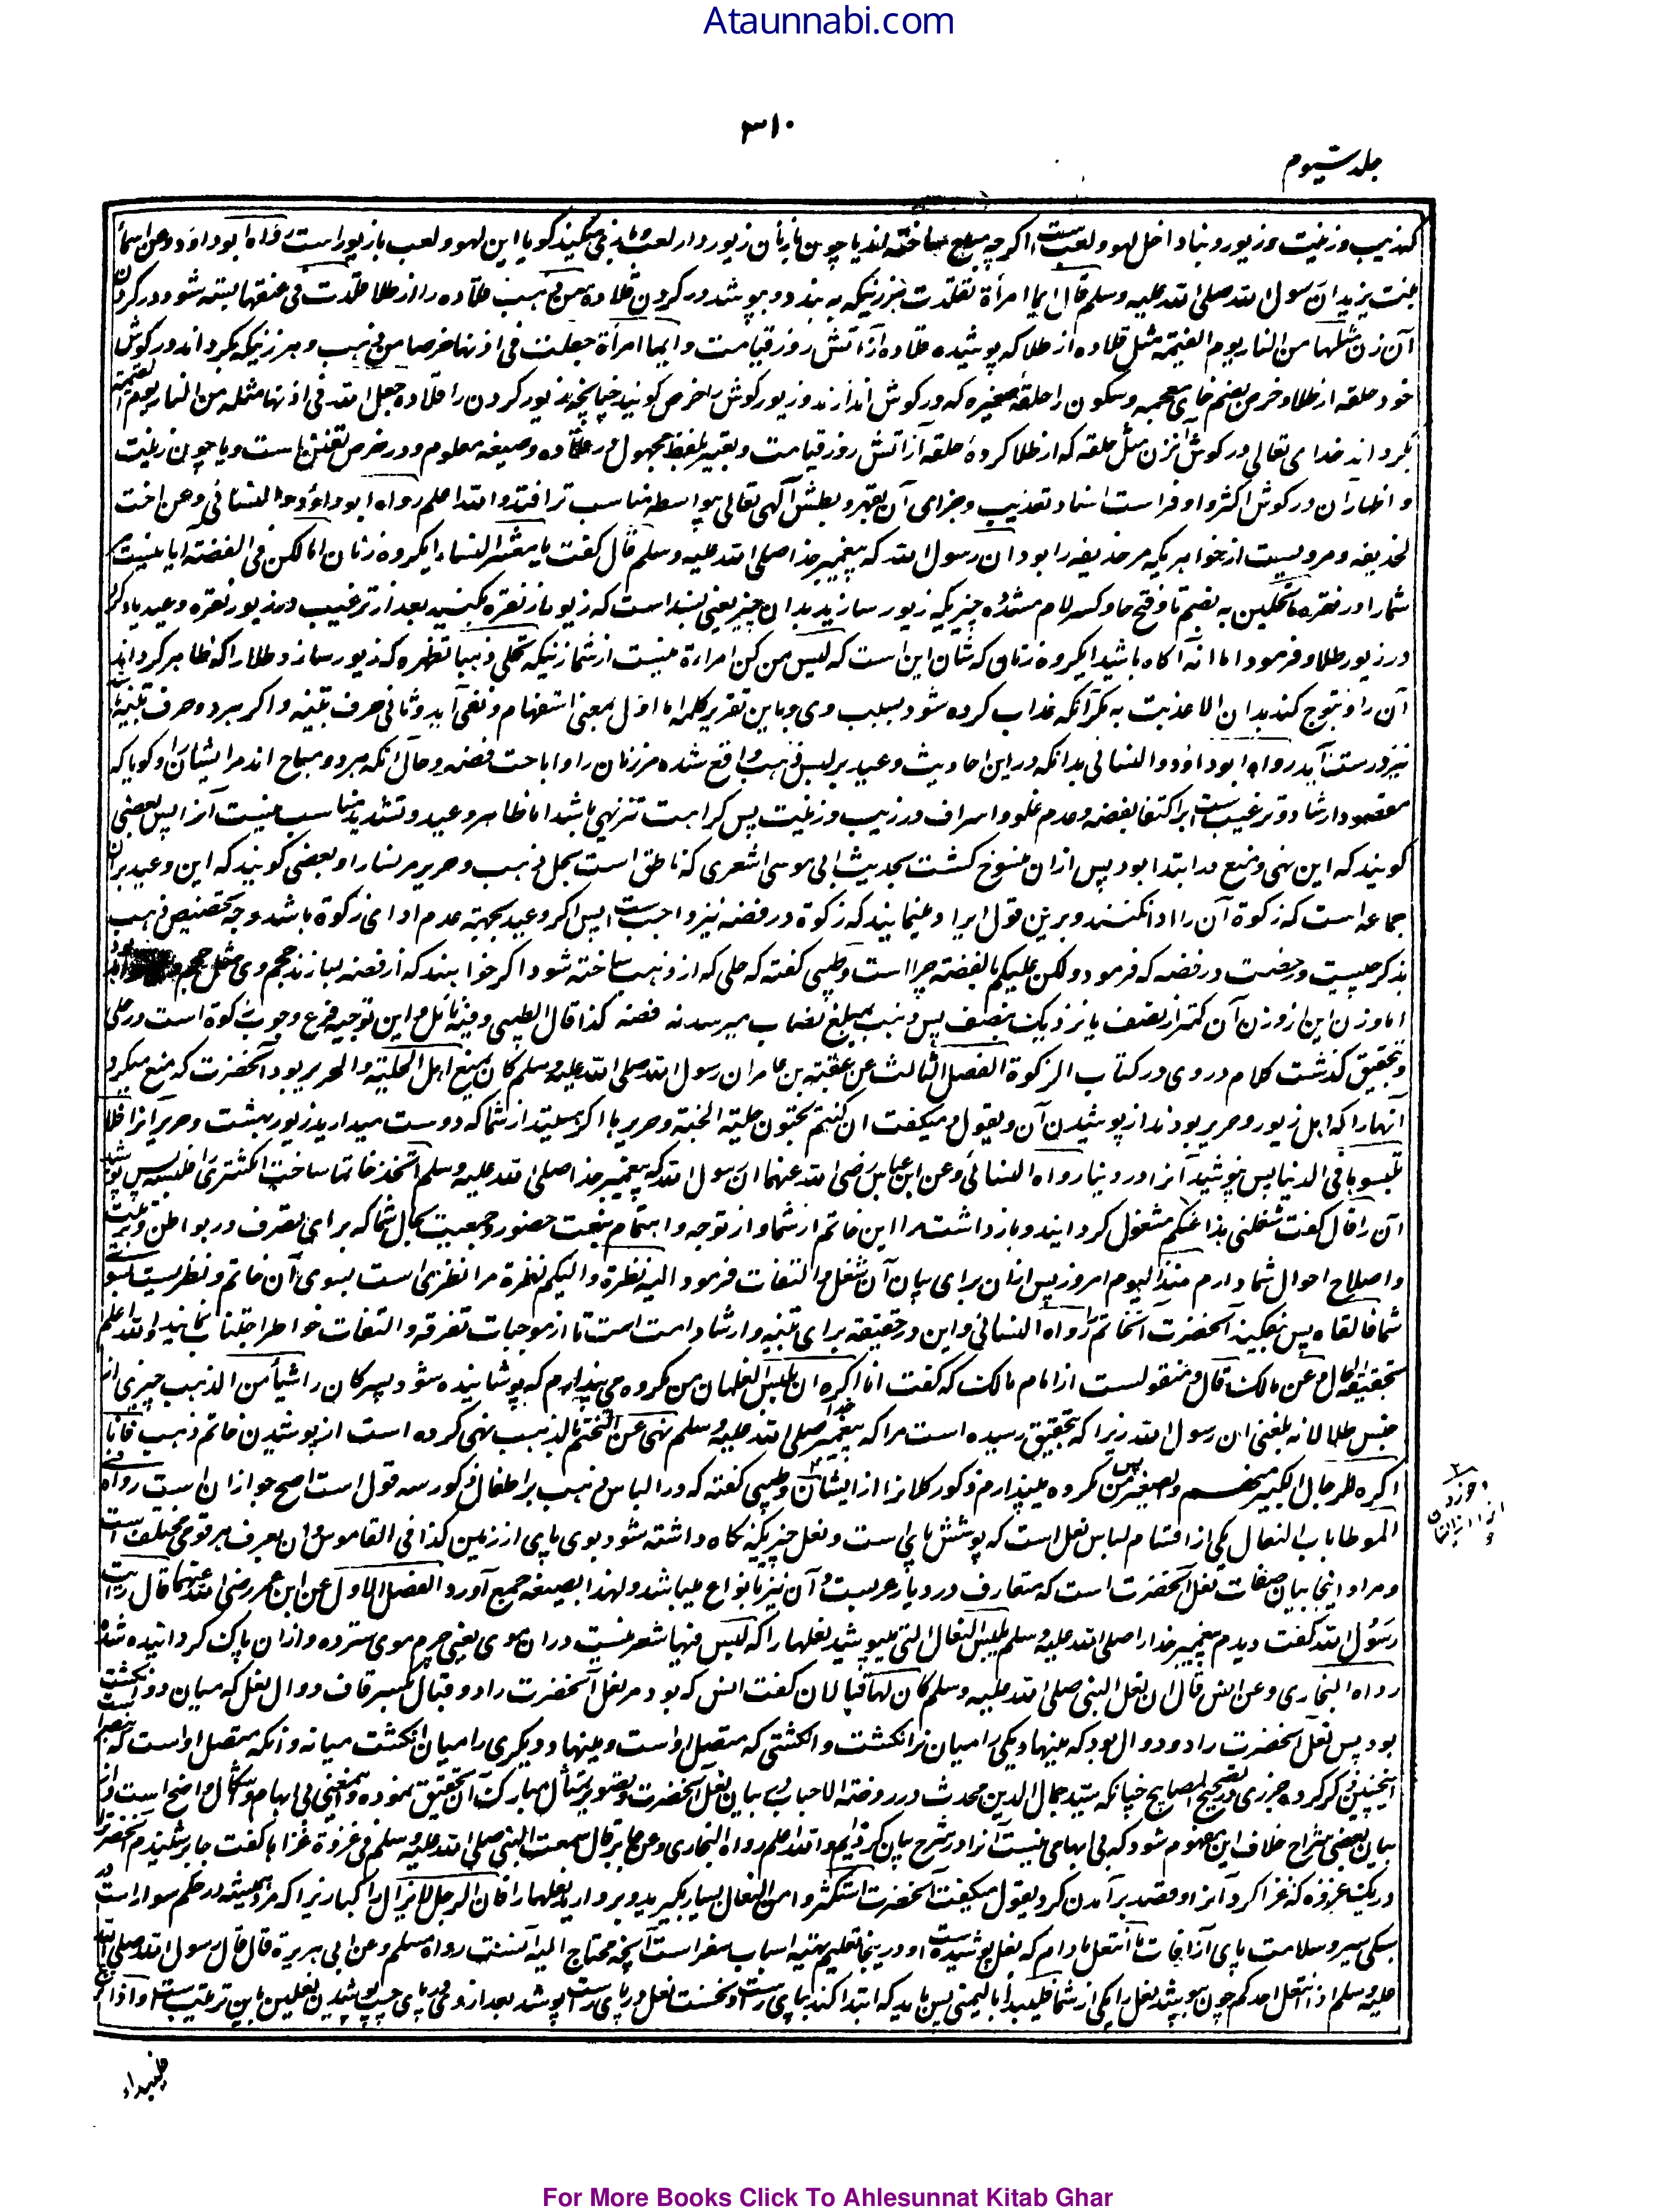 Ataunnabi.com
۳۱۰
جلد سیوم
که زیب و زینت و زیور دنیا داخل لهو و لعب ست اگر چه مباح ساخته اند یا چون بازنان زیور دار لعب و بازی میکنند گویا این لهو و لعب با زیور است رواه ابو داؤد وعن اسماء
بنت یزید ان رسول الله صلی الله علیه وسلم قال ایما امرأة تقلدت هر زنیکه به بندد و بپوشد در گردن قلادة من ذهب قلاده را از طلا قلدت فی عنقها بسته شود در گردن
آن زن مثلها من النار یوم القیمة مثل قلاده از طلا که پوشیده قلاده از آتش روز قیامت وایما امرأة جعلت فی اذنها خرصا من ذهب و هر زنیکه بگرداند در گوش
خود حلقه از طلا و خرص بضم خای معجمه و سکون را حلقه صغیره که در گوش اندازند و زیور گوش را خرص گویند چنانچه زیور گردن را قلاده جعل الله فی اذنها مثله من النار یوم القیمة
بگرداند خدای تعالی در گوش آنزن مثل حلقه که از طلا کرده حلقه از آتش روز قیامت و تعبیر بلفظ مجهول در قلاده و صیغه معلوم و در خرص تفنن ست و یا چون زینت
و اظهار آن در گوش اکثر و اوفر است اسناد تعذیب و جزای آن بقهر و بطش آلهی تعالی بواسطه مناسب تر افتد والله اعلم رواه ابو داؤد والنسائی وعن اخت
لحذیفه و مرویست از خواهریکه مر حذیفه را بود ان رسول الله که پیغمبر خدا صلی الله علیه وسلم قال گفت یا معشر النساء ای گروه زنان اما لکن فی الفضة آیا نیست
شما را در نقره ما تحلین به بضم تا و فتح حا و کسر لام مشدده چیزیکه زیور سازید بدان چیز یعنی بسند است که زیورها از نقره بکنید بعد از ترغیب در زیور نقره وعید یاد کرد
در زیور طلا و فرمود اما انه آگاه باشید ای گروه زنان که شان این است که لیس منکن امرأة نیست از شما زنیکه تحلی ذهبا تظهره که زیور سازد طلا را که ظاهر گرداند
آن را و تبرج کند بدان الا عذبت به مگر آنکه عذاب کرده شود بسبب وی و باین تقریر کلمه اما اول بمعنی استفهام و نفی آید و ثانی حرف تنبیه و اگر هر دو حرف تنبیه باشد
نیز درست آید رواه ابو داؤد والنسائی بدانکه در این احادیث وعید بر لبس ذهب واقع شده مر زنان را و اباحت فضه و حال آنکه هر دو مباح اند مر ایشان را و گویا که
مقصود ارشاد و ترغیب ست بر اکتفا بفضه و عدم غلو و اسراف در زیب و زینت پس کراهت تنزیهی باشد اما ظاهر وعید و تشدید مناسب نیست آنرا پس بعضی
گویند که این نهی و منع در ابتدا بود پس ازان منسوخ گشت بحدیث ابی موسی اشعری که ناطق است بحل ذهب و حریر مر نسا را و بعضی گویند که این وعید بران
جماعه است که زکوة آن را ادا نکنند و برین قول ایراد مینمایند که زکوة در فضه نیز واجب ست پس اگر وعید بجهته عدم ادای زکوة باشد وجه تخصیص ذهب
بذکر چیست و رخصت در فضه که فرمود و لکن علیکم بالفضة چرا است و طیبی گفته که حلی که از ذهب ساخته شود اگر خواهند که از فضه بسازند حجم وی مثل حجم
اما وزن این از وزن آن کمتر از نصف یا نزدیک بنصف پس ذهب بمبلغ نصاب میرسد نه فضه کذا قال الطیبی وفیه تأمل و این توجیه فرع وجوب زکوة است در حلی
و بتحقیق گذشت کلام در وی در کتاب الزکوة الفصل الثالث عن عقبة بن عامر ان رسول الله صلی الله علیه وسلم کان یمنع اهل الحلیة والحریر بود آنحضرت که منع میکرد
آنها را که اهل زیور و حریر بودند از پوشیدن آن و یقول و میگفت ان کنتم تحبون حلیة الجنة وحریرها اگر هستید از شما که دوست میدارید زیور بهشت و حریر آنرا فلا
تلبسوها فی الدنیا پس نپوشید آنرا در دنیا رواه النسائی وعن ابن عباس رضی الله عنهما ان رسول الله که پیغمبر خدا صلی الله علیه وسلم اتخذ خاتما ساخت انگشتری را فلبسه پس پوشید
آن را قال گفت شغلنی هذا عنکم مشغول گردانید و باز داشت مرا این خاتم از شما و از توجه و اهتمام بنعت حضور و جمعیت بحال شما که برای تصرف در بواطن و تربیت
و اصلاح احوال شما دارم منذ الیوم امروز پس ازان برای بیان آن شغل و التفات فرمود الیه نظرة والیکم نظرة مرا نظری است بسوی آن خاتم و نظریست بسوی
شما فالقاه پس بیفکند آنحضرت آنخاتم را رواه النسائی و این در حقیقه برای تنبیه و ارشاد امت است تا از موجبات تفرقه و التفات خواطر اجتناب نمایند والله اعلم
بحقیقة الحال وعن مالک قال و منقولست از امام مالک که گفت انا اکره ان یلبس الغلمان من مکروه می پندارم که پوشانیده شود پسرکان را شیأ من الذهب چیزی از
جنس طلا لانه بلغنی ان رسول الله زیرا که بتحقیق رسیده است مرا که پیغمبر خدا صلی الله علیه وسلم نهی عن التختم بالذهب نهی کرده است از پوشیدن خاتم ذهب فانا
اکره للرجال الکبیر منهم والصغیر پس من مکروه میپندارم ذکور کلانرا از ایشان و طیبی گفته که در الباس ذهب بر اطفال ذکور سه قول است اصح جواز آن است رواه فی
الموطا باب النعال یکی از اقسام لباس نعل است که پوشش پای است و نعل چیزیکه نگاه داشته شود بوی پای از زمین کذا فی القاموس و آن بعرف هر قومی مختلف است
و مراد اینجا بیان صفات نعل آنحضرت است که متعارف در دیار عرب ست و آن نیز بانواع میباشد و لهذا بصیغه جمع آورد الفصل الاول عن ابن عمر رضی الله عنهما قال رأیت
رسول الله گفت دیدم پیغمبر خدا را صلی الله علیه وسلم یلبس النعال التی میپوشید نعلها را که لیس فیها شعر نیست دران موی یعنی چرم موی سترده و ازان پاک گردانیده شده
رواه البخاری وعن انس قال ان نعل النبی صلی الله علیه وسلم کان لها قبالان گفت انس که بود مر نعل آنحضرت را دو قبال بکسر قاف دوال نعل که میان دو انگشت است
بود پس نعل آنحضرت را دو دوال بود که مینهاد یکی را میان نر انگشت و انگشتی که متصل اوست و مینهاد دیگری را میان انگشت میانه و آنکه متصل اوست که بنصر است
اینچنین ذکر کرده جزری در تصحیح المصابیح چنانکه سید جمال الدین محدث در روضة الاحباب بیان نعل آنحضرت و تصویر تمثال مبارک آن تحقیق نموده و معنی بی ابهام و اشکال واضح است و از
بیان بعضی شراح خلاف این مفهوم شود که بی ابهامی نیست آنرا در شرح بیان کرده ایم والله اعلم رواه البخاری وعن جابر قال سمعت النبی صلی الله علیه وسلم فی غزوة غزاها گفت جابر شنیدم آنحضرت را
در یک غزوه که غزا کرد آنرا و قصد بر آمدن کرد یقول میگفت آنحضرت استکثروا من النعال بسیار بگیرید و بردارید نعلها را فان الرجل لا یزال راکبا زیرا که مرد همیشه در حکم سوار است در
سبکی سیر و سلامت پای از آفات ما انتعل مادام که نعل پوشیده است و درینجا تعلیم تهیه اسباب سفر است آنچه محتاج الیه است رواه مسلم وعن ابی هریرة قال قال رسول الله صلی الله
علیه وسلم اذا انتعل احدکم چون بپوشد نعل را یکی از شما فلیبدأ بالیمنی پس باید که ابتدا کند بپای راست و نخست نعل در پای راست پوشد بعد ازان در پای چپ پوشیدن نعلین باین ترتیب ست و اذا نزع
فلیبدأ
For More Books Click To Ahlesunnat Kitab Ghar